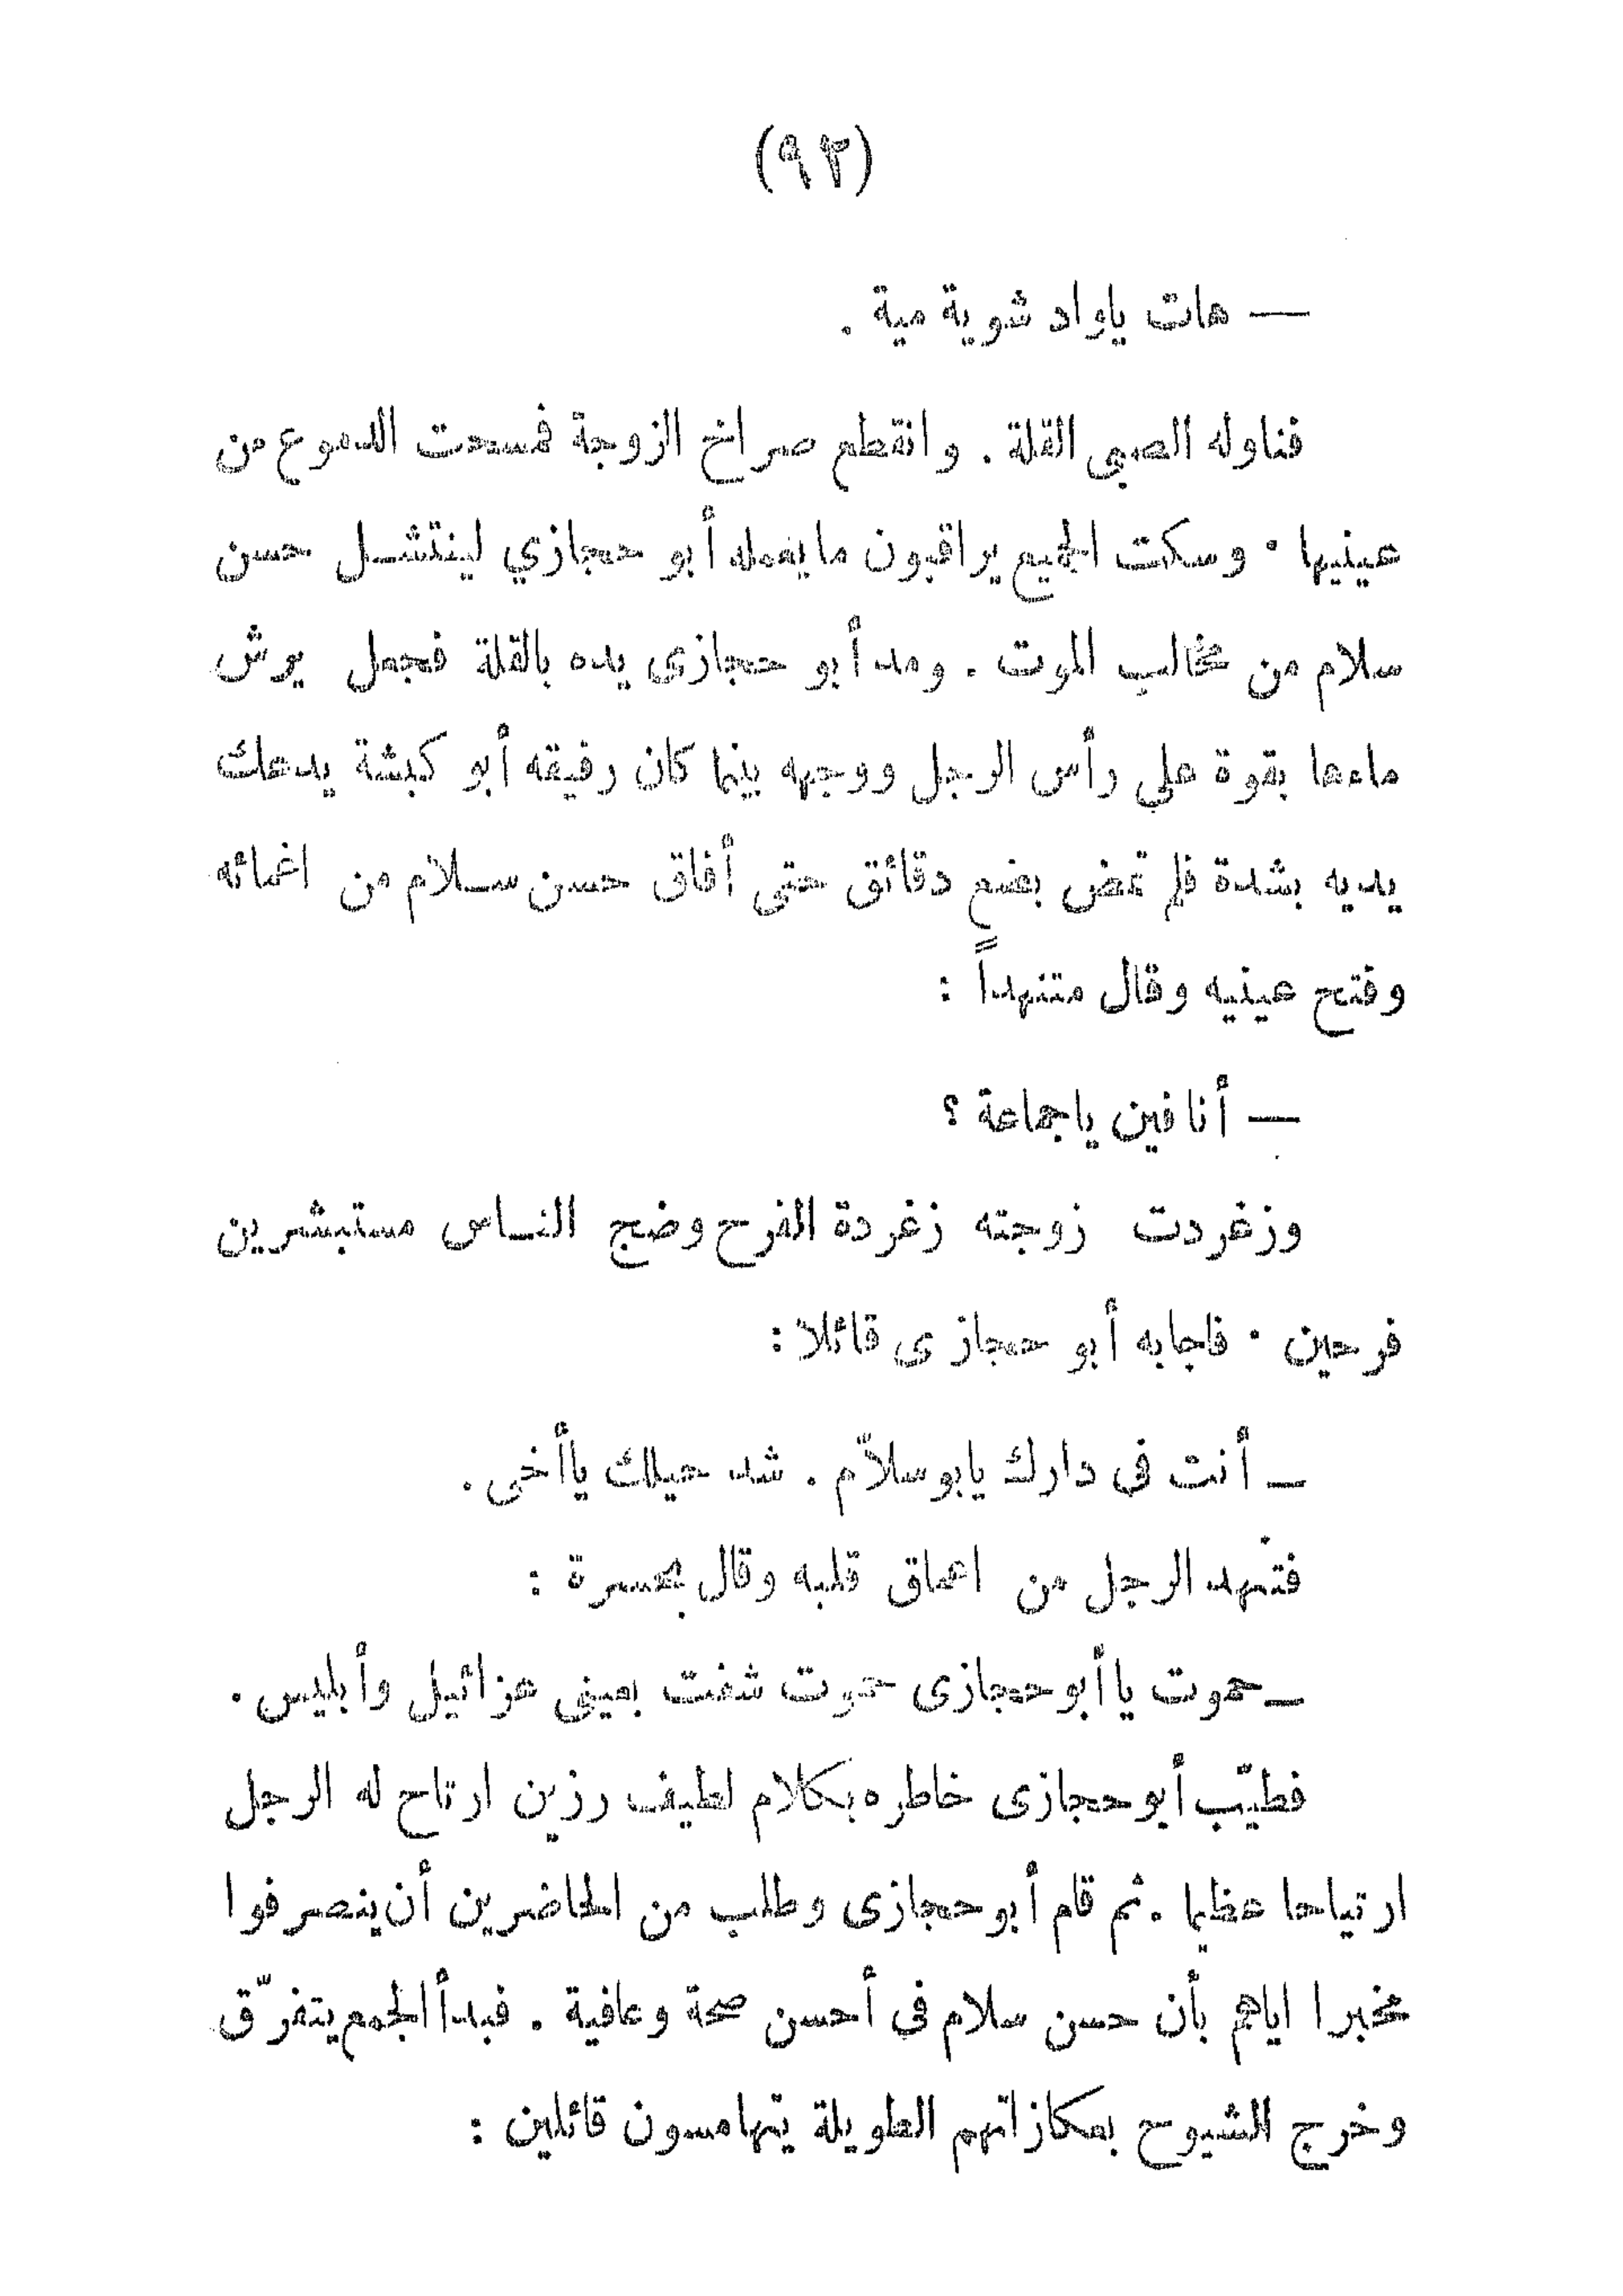 (٩٣)
— هات ياواد شوية مية .
فناوله الصبي القلة . وانقطع صراخ الزوجة فمسحت الدموع من
عينيها . وسكت الجميع يراقبون مايفعله أبو حجازي لينتشل حسن
سلام من مخالب الموت . ومد أبو حجازى يده بالقلة فجعل يرش
ماءها بقوة علي رأس الرجل ووجهه بينما كان رفيقه أبو كبشة يدعك
يديه بشدة فلم تمض بضع دقائق حتى أفاق حسن سلام من اغمائه
وفتح عينيه وقال متنهداً :
— أنا فين ياجماعة ؟
وزغردت زوجته زغردة الفرح وضج الناس مستبشرين
فرحين . فاجابه أبو حجازى قائلا :
— أنت في دارك يابو سلاّم . شد حيلك ياأخى .
فتنهد الرجل من اعماق قلبه وقال بحسرة :
— حموت ياأبو حجازى حموت شفت بعينى عزائيل وأبليس .
فطيّب أبو حجازى خاطره بكلام لطيف رزين ارتاح له الرجل
ارتياحا عظيما . ثم قام أبو حجازى وطلب من الحاضرين أن ينصرفوا
مخبرا اياهم بأن حسن سلام في أحسن صحة وعافية . فبدأ الجمع يتفرّق
وخرج الشيوح بعكازاتهم الطويلة يتهامسون قائلين :